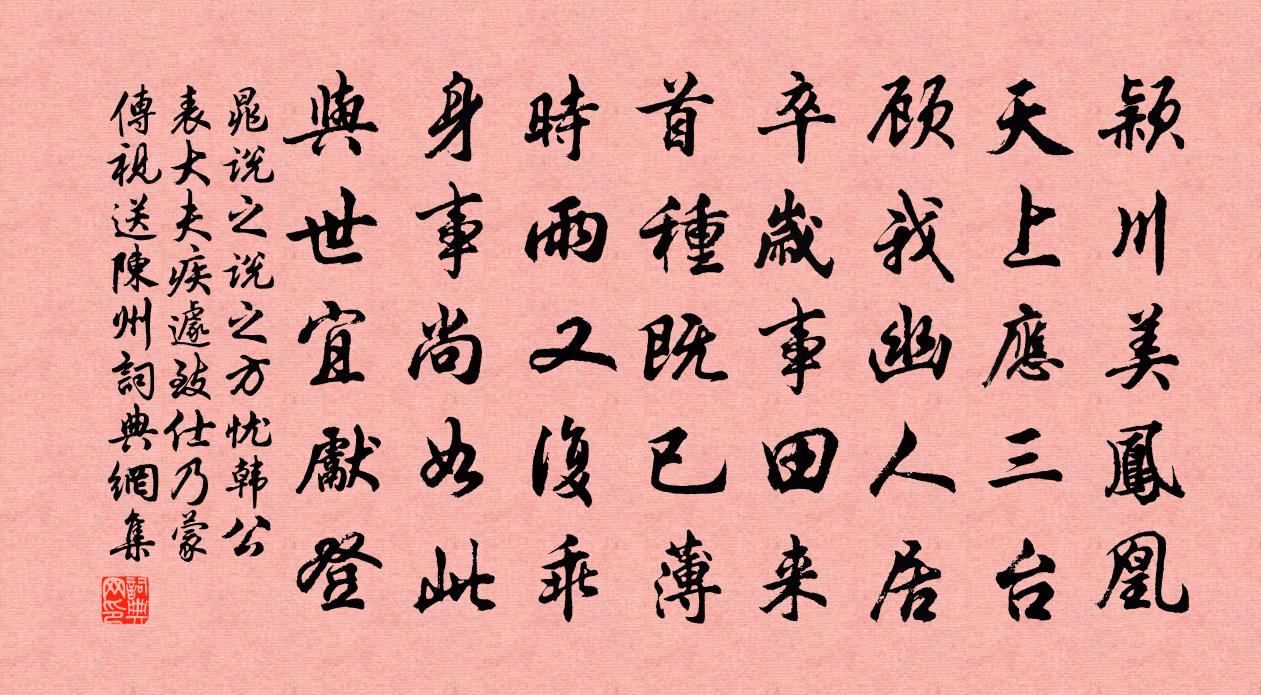 颖川美鳳凰
天上應三台
顾我幽人居
卒歲事田来
首種既已薄
時雨又復乖
身事尚如此
與世宜獻登
晁说之说之方忧韩公
表大夫疾遽致仕乃蒙
傳視送陳州詞典網集
詞典
网印